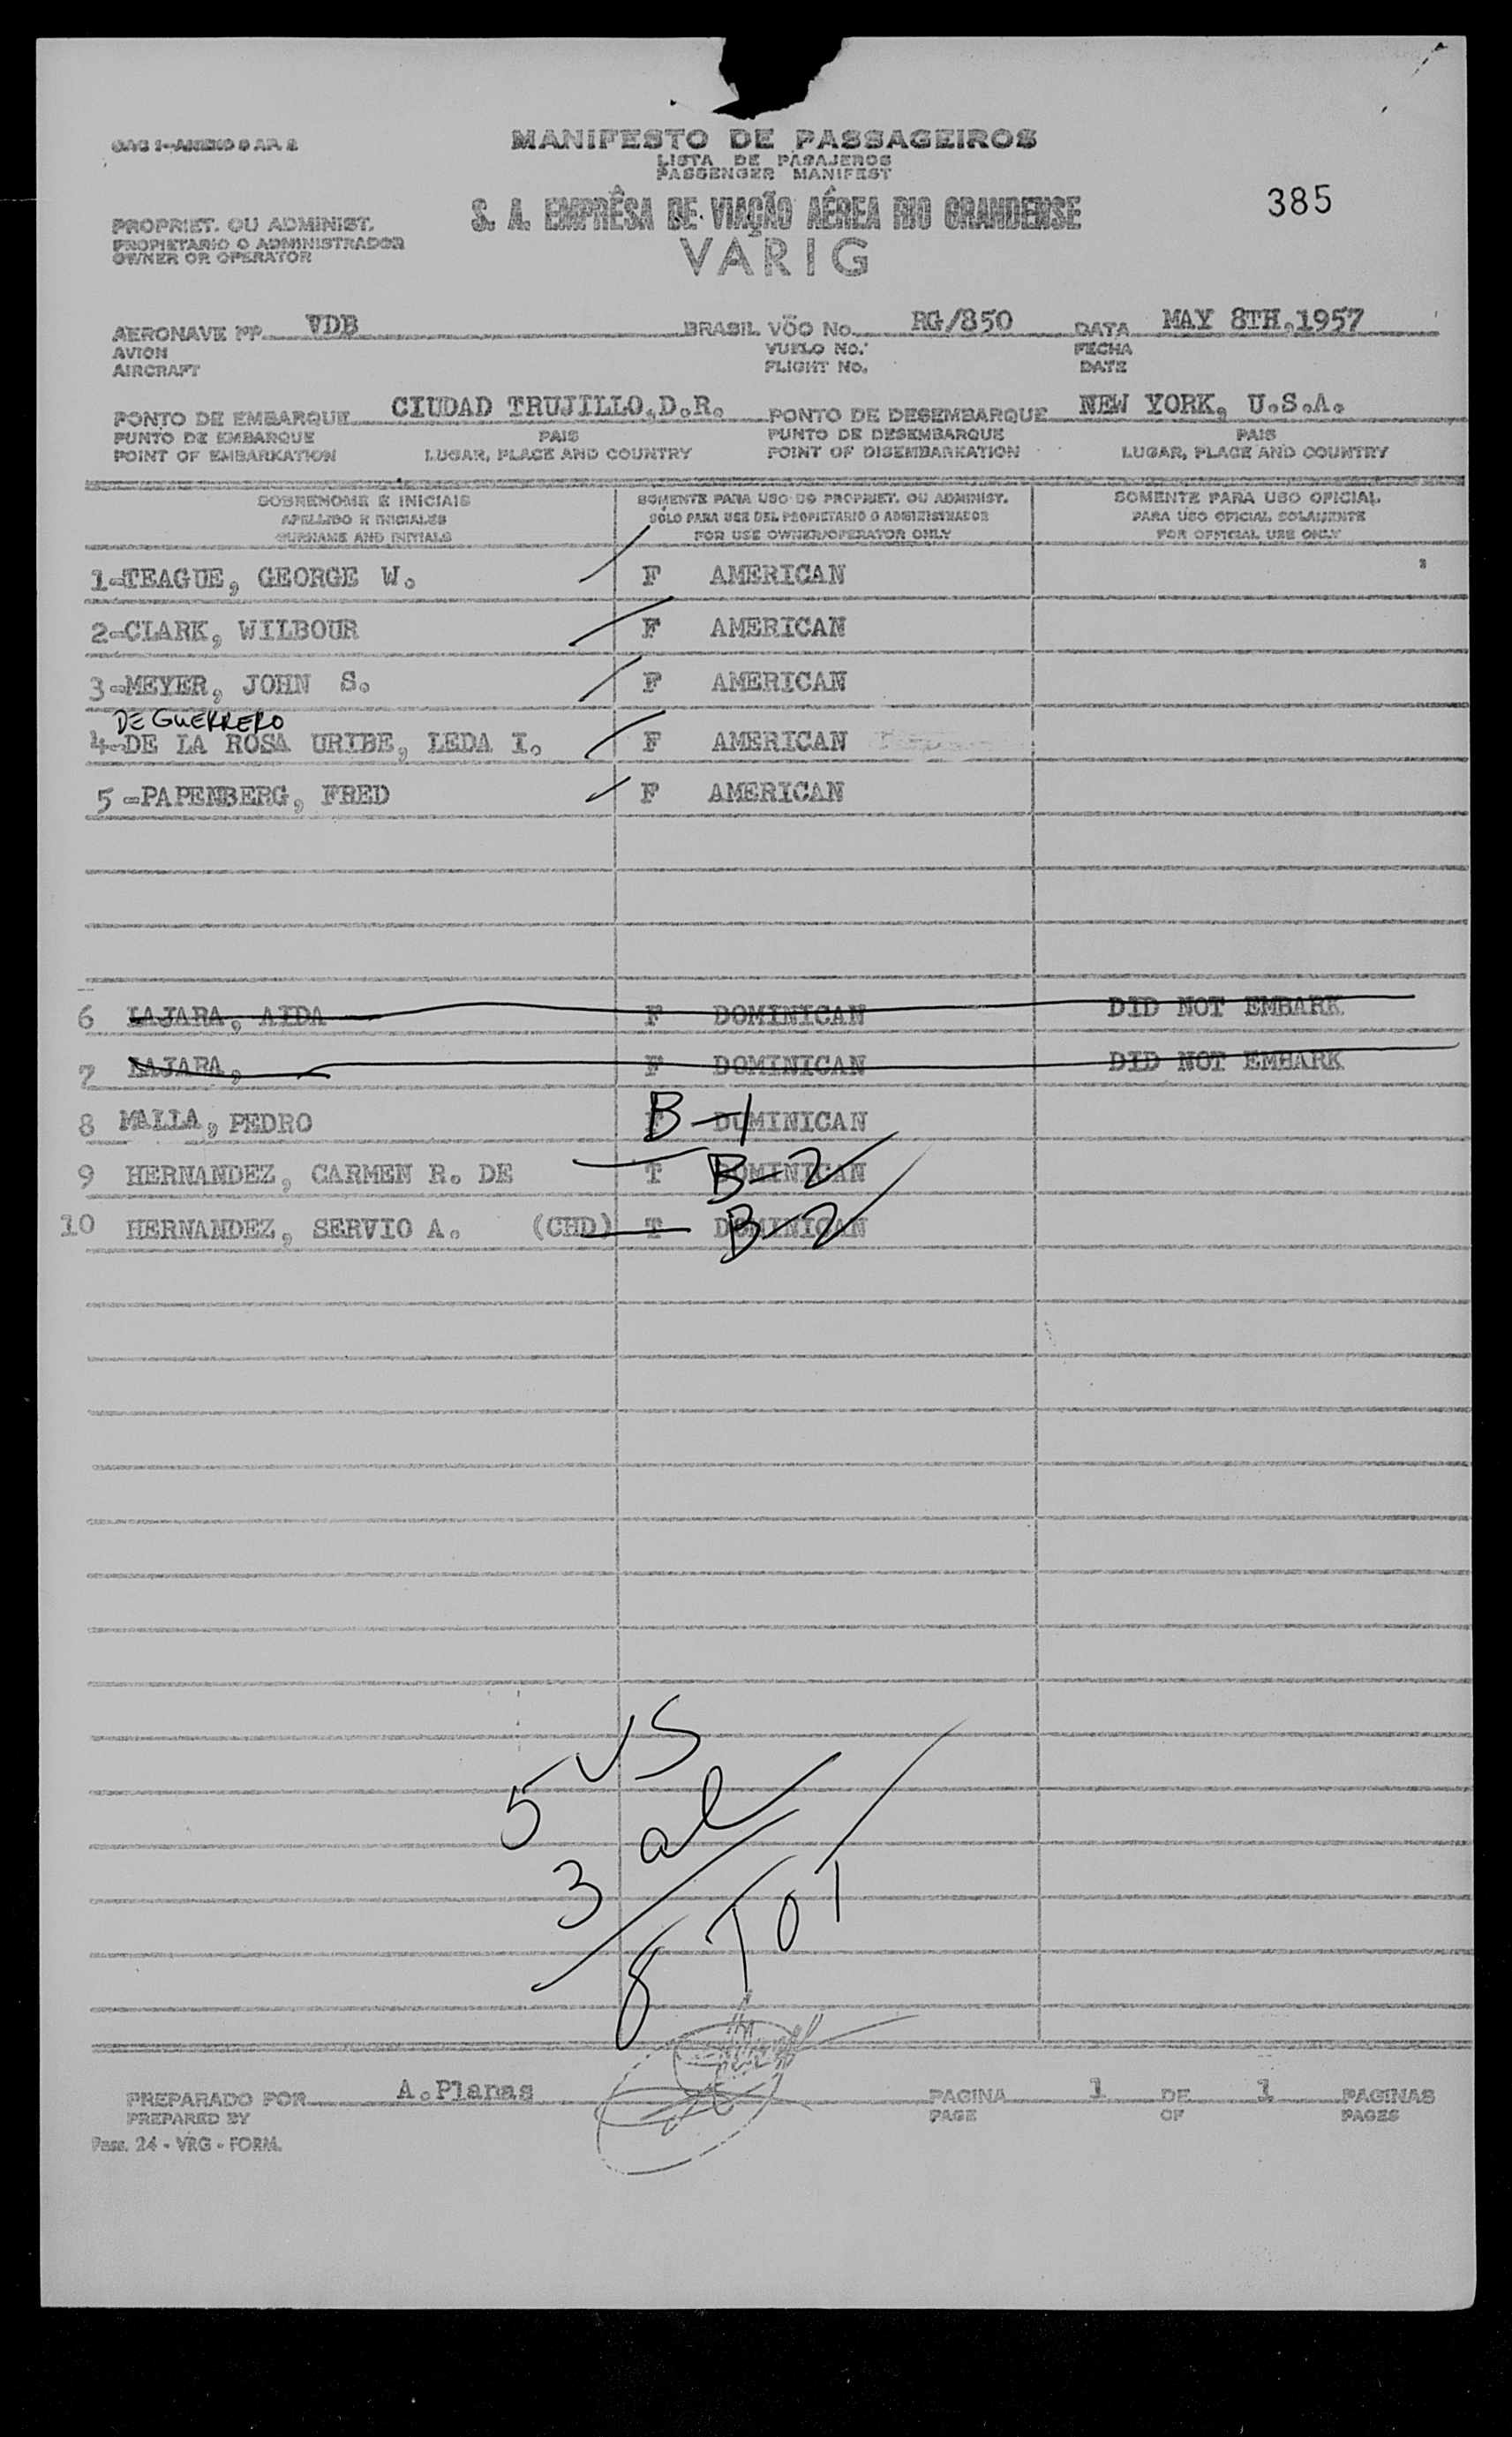 OAC I-ANEXO 9 AP. 2
MANIFESTO DE PASSAGEIROS
LISTA DE PASAJEROS
PASSENGER MANIFEST
385
S. A. EMPRÊSA DE VIAÇÃO AÉREA RIO GRANDENSE
VARIG
PROPRIET. OU ADMINIST.
PROPIETARIO O ADMINISTRADOR
OWNER OR OPERATOR
AERONAVE PP VDB BRASIL VÔO No. RG/850 DATA MAY 8TH,1957
AVION VUELO NO. FECHA
AIRCRAFT FLIGHT NO. DATE
PONTO DE EMBARQUE CIUDAD TRUJILLO,D.R. PONTO DE DESEMBARQUE NEW YORK, U.S.A.
PUNTO DE EMBARQUE PAIS PUNTO DE DESEMBARQUE PAIS
POINT OF EMBARKATION LUGAR, PLACE AND COUNTRY POINT OF DISEMBARKATION LUGAR, PLACE AND COUNTRY
SOBRENOME E INICIAIS SOMENTE PARA USO DO PROPRIET. OU ADMINIST. SOMENTE PARA USO OFICIAL
APELLIDO E INICIALES SÓLO PARA USE DEL PROPIETARIO O ADMINISTRADOR PARA USO OFICIAL SOLAMENTE
SURNAME AND INITIALS FOR USE OWNER/OPERATOR ONLY FOR OFFICIAL USE ONLY
1-TEAGUE, GEORGE W. F AMERICAN
2-CLARK, WILBOUR F AMERICAN
3-MEYER, JOHN S. F AMERICAN
DE GUERRERO
4-DE LA ROSA URIBE, LEDA I. F AMERICAN
5-PAPENBERG, FRED F AMERICAN
6 LAJARA, AIDA F DOMINICAN DID NOT EMBARK
7 LAJARA, F DOMINICAN DID NOT EMBARK
8 MALLA, PEDRO F B-1 DOMINICAN
9 HERNANDEZ, CARMEN R. DE T DOMINICAN B-2
10 HERNANDEZ, SERVIO A. (CHD) T DOMINICAN B-2
5 US
3 al
8 TOT
PREPARADO POR A.Planas PAGINA 1 DE 1 PAGINAS
PREPARED BY PAGE OF PAGES
Pass. 24 - VRG - FORM.